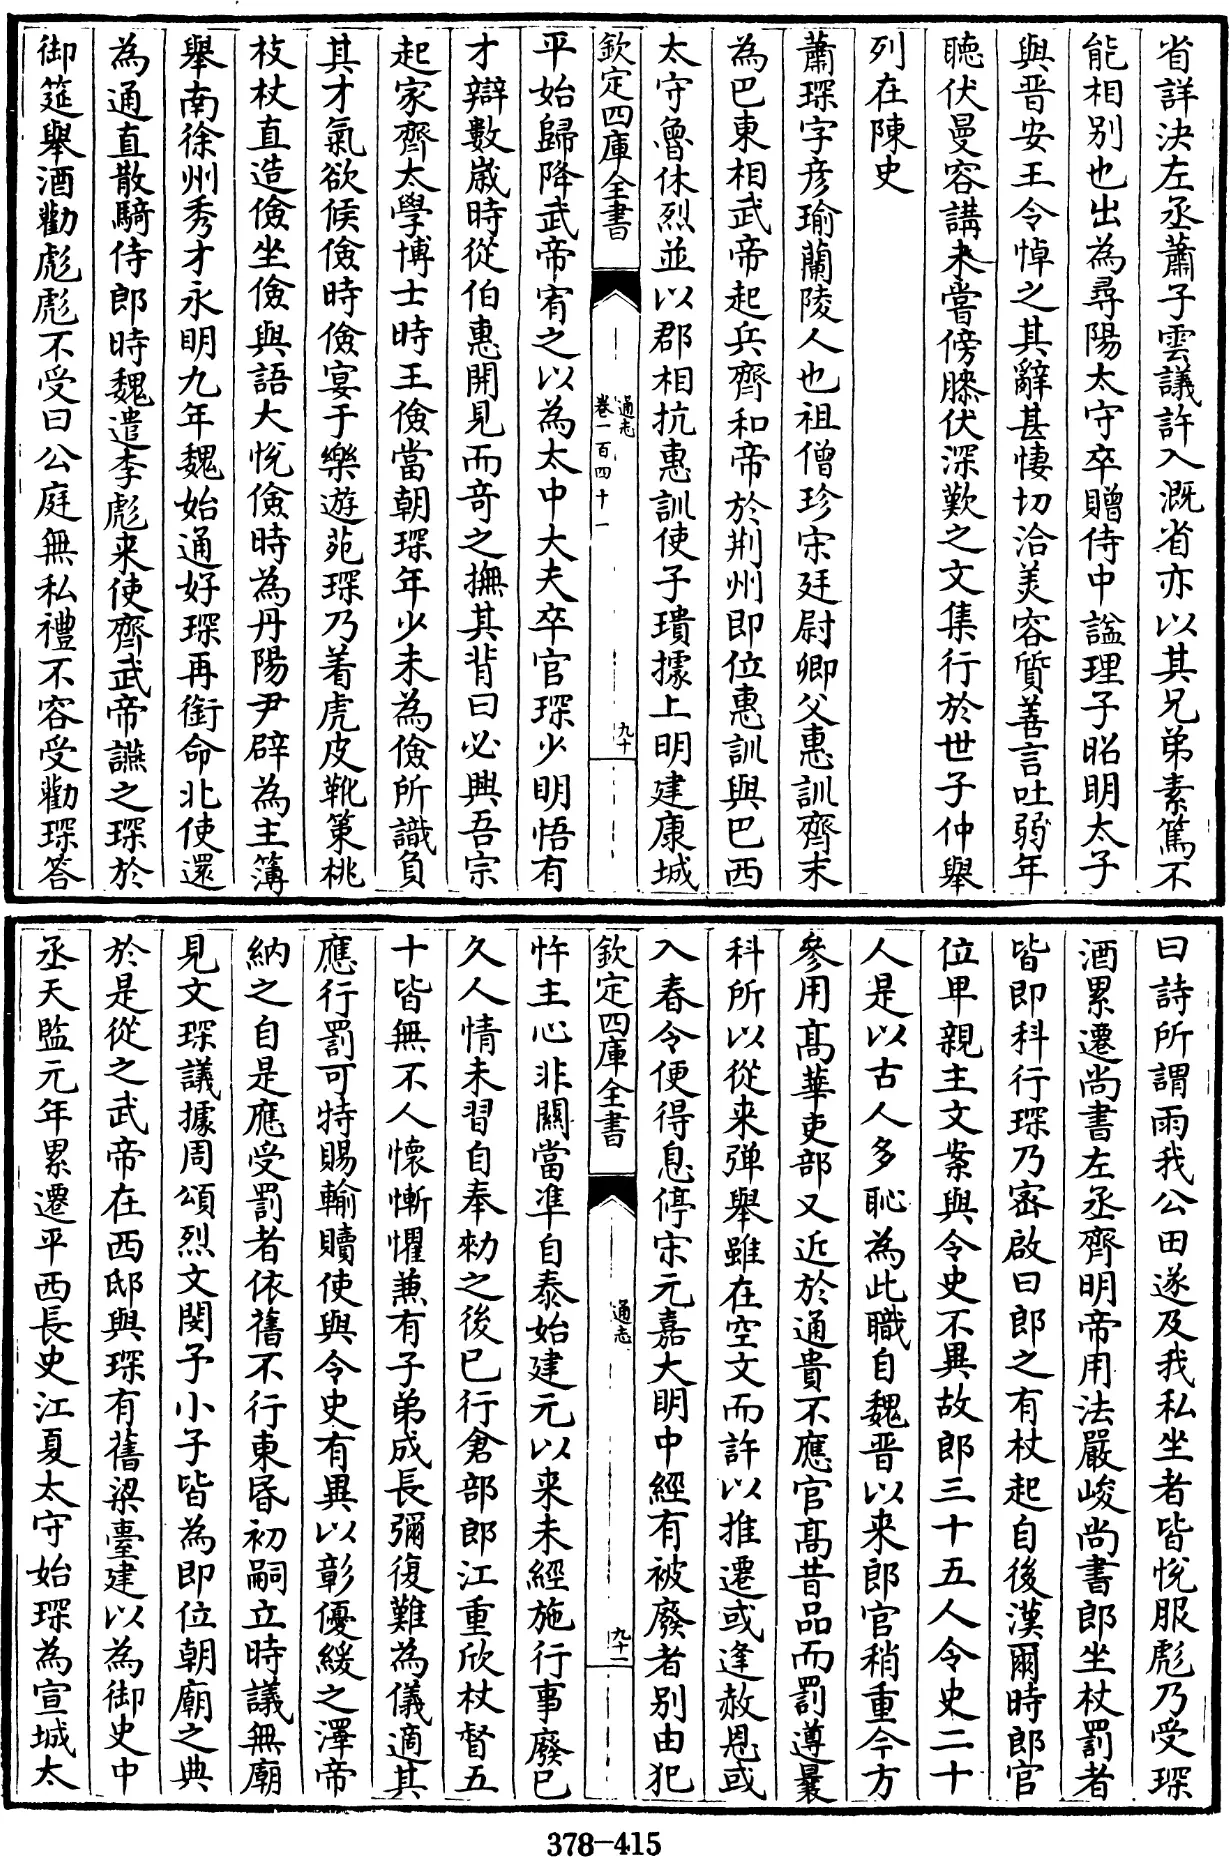 省詳決左丞蕭子雲議許入溉省亦以其兄弟素篤不
能相别也出為尋陽太守卒贈侍中諡理子昭明太子
與晋安王令悼之其辭甚悽切洽美容質善言吐弱年
聽伏曼容講未嘗傍膝伏深歎之文集行於世子仲舉
列在陳史
蕭琛字彦瑜蘭陵人也祖僧珍宋廷尉卿父惠訓齊末
為巴東相武帝起兵齊和帝於荆州即位惠訓與巴西
太守魯休烈並以郡相抗惠訓使子璝據上明建康城
欽定四庫全書
通志
卷一百四十一
九十
平始歸降武帝宥之以為太中大夫卒官琛少明悟有
才辯數歲時從伯惠開見而奇之撫其背曰必興吾宗
起家齊太學博士時王儉當朝琛年少未為儉所識負
其才氣欲候儉時儉宴于樂遊苑琛乃着虎皮靴策桃
枝杖直造儉坐儉與語大悦儉時為丹陽尹辟為主簿
舉南徐州秀才永明九年魏始通好琛再銜命北使還
為通直散騎侍郎時魏遣李彪来使齊武帝讌之琛於
御筵舉酒勸彪彪不受曰公庭無私禮不容受勸琛答
曰詩所謂雨我公田遂及我私坐者皆悦服彪乃受琛
酒累遷尚書左丞齊明帝用法嚴峻尚書郎坐杖罰者
皆即科行琛乃密啟曰郎之有杖起自後漢爾時郎官
位卑親主文案與令史不異故郎三十五人令史二十
人是以古人多恥為此職自魏晋以来郎官稍重今方
參用高華吏部又近於通貴不應官高昔品而罰遵曩
科所以從来彈舉雖在空文而許以推遷或逢赦恩或
入春令便得息停宋元嘉大明中經有被廢者别由犯
欽定四庫全書
通志
九十一
忤主心非關當準自泰始建元以来未經施行事廢已
久人情未習自奉勑之後已行倉部郎江重欣杖督五
十皆無不人懷慚懼兼有子弟成長彌復難為儀適其
應行罰可特賜輸贖使與令史有異以彰優緩之澤帝
納之自是應受罰者依舊不行東昏初嗣立時議無廟
見文琛議據周頌烈文閔予小子皆為即位朝廟之典
於是從之武帝在西邸與琛有舊梁臺建以為御史中
丞天監元年累遷平西長史江夏太守始琛為宣城太
378-415